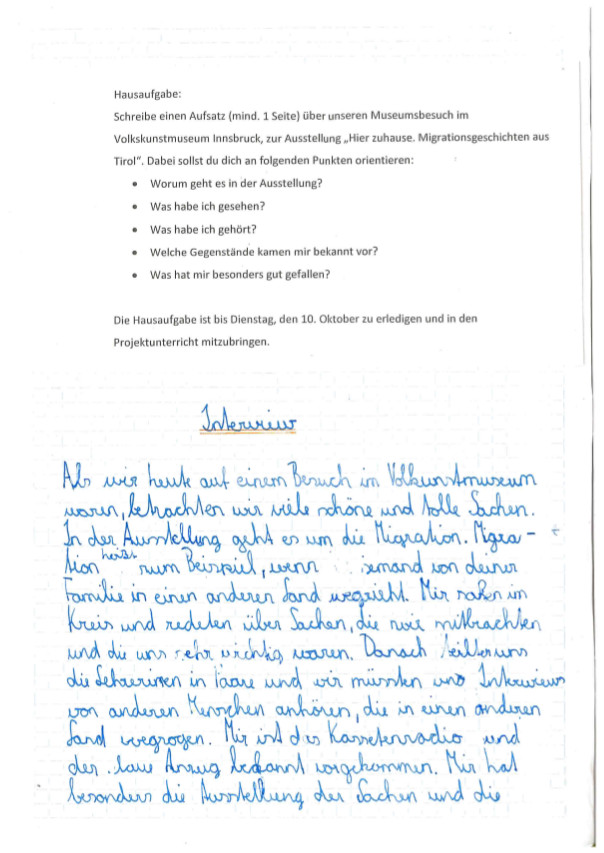 Hausaufgabe:
Schreibe einen Aufsatz (mind. 1 Seite) über unseren Museumsbesuch im
Volkskunstmuseum Innsbruck, zur Ausstellung „Hier zuhause. Migrationsgeschichten aus
Tirol“. Dabei sollst du dich an folgenden Punkten orientieren:
• Worum geht es in der Ausstellung?
• Was habe ich gesehen?
• Was habe ich gehört?
• Welche Gegenstände kamen mir bekannt vor?
• Was hat mir besonders gut gefallen?
Die Hausaufgabe ist bis Dienstag, den 10. Oktober zu erledigen und in den
Projektunterricht mitzubringen.
Als wir heute auf einem Besuch im Volkunstmuseum
waren, betrachten wir viele schöne und tolle Sachen.
In der Ausstellung geht es um die Migration. Migra-
tion heißt zum Beispiel, wenn jemand von deiner
Familie in einen anderen Land wegzieht. Mir saßen im
Kreis und redeten über Sachen, die wir mitbrachten
und die uns sehr wichtig waren. Danach teilten uns
die Lehrerinnen in Paare und wir müssten uns Interviews
von anderen Menschen anhören, die in einen anderen
Land wegzogen. Mir ist das Kassetenradio und
der blaue Anzug bekannt vorgekommen. Mir hat
besonders die Ausstellung der Sachen und die